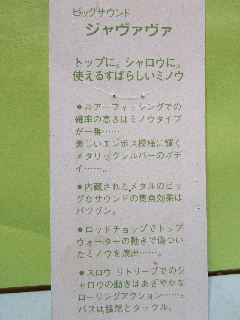 ビッグサウンド
ジャヴァヴァ
トップに。シャロウに。
使えるすばらしいミノウ
●ルアーフィッシングでの
確率の高さはミノウタイプ
が一番……
美しいエンボス模様に輝く
メタリックシルバーのボデ
イ……。
●内蔵されたメタルのビッ
グなサウンドの集魚効果は
バツグン。
●ロッドチョップでトップ
ウォーターの動きで傷つい
たミノウを演出……。
●スロウ リトリーブでのシ
ャロウの動きはあざやかな
ローリングアクション……。
バスは猛然とタックル。